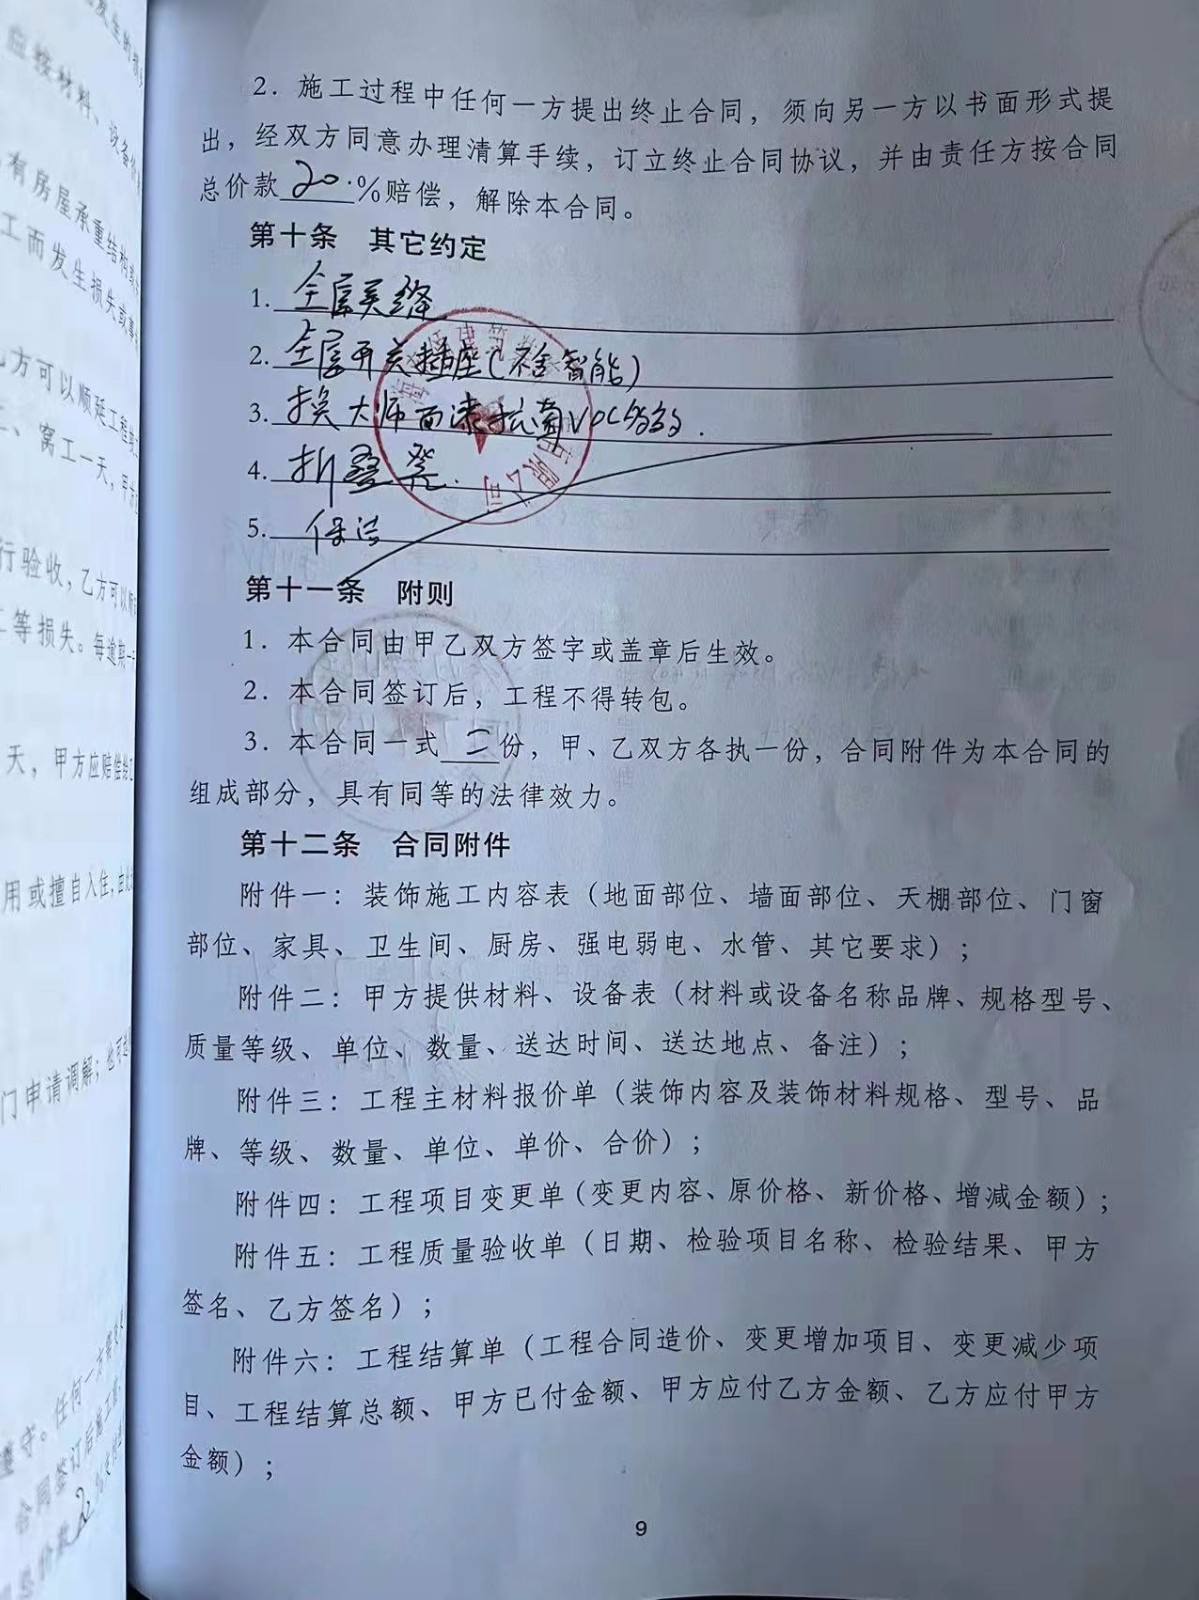 2．施工过程中任何一方提出终止合同，须向另一方以书面形式提
出，经双方同意办理清算手续，订立终止合同协议，并由责任方按合同
总价款20.%赔偿，解除本合同。
第十条 其它约定
1. 全屋美缝
2. 全屋开关插座（不含智能）
3. 换大师面漆
4. 折叠凳.
5. 保洁
有限公司
第十一条 附则
1．本合同由甲乙双方签字或盖章后生效。
2．本合同签订后，工程不得转包。
3．本合同一式二份，甲、乙双方各执一份，合同附件为本合同的
组成部分，具有同等的法律效力。
第十二条 合同附件
附件一：装饰施工内容表（地面部位、墙面部位、天棚部位、门窗
部位、家具、卫生间、厨房、强电弱电、水管、其它要求）；
附件二：甲方提供材料、设备表（材料或设备名称品牌、规格型号、
质量等级、单位、数量、送达时间、送达地点、备注）；
附件三：工程主材料报价单（装饰内容及装饰材料规格、型号、品
牌、等级、数量、单位、单价、合价）；
附件四：工程项目变更单（变更内容、原价格、新价格、增减金额）；
附件五：工程质量验收单（日期、检验项目名称、检验结果、甲方
签名、乙方签名）；
附件六：工程结算单（工程合同造价、变更增加项目、变更减少项
目、工程结算总额、甲方已付金额、甲方应付乙方金额、乙方应付甲方
金额）；
9